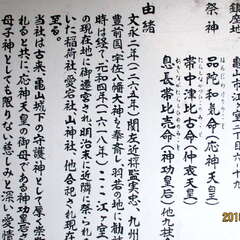 鎮座地
亀山市江ヶ室二丁目六ー十九
祭神
品陀和気命(応神天皇)
帯中津比古命(仲哀天皇)
息長帯比売命(神功皇后)他九柱
由緒
文永二年(一二六五年)関左近将監実忠、九州
豊前国・宇佐八幡大神を奉斎し、羽若の地に勧
時は経て、元和四年(一六一八年)ここ江ヶ室
の現在地に御遷宮され明治末に近隣に祭られ
いた稲荷社、愛宕社、山神社、他合祀され現在
至る。
当社は古来、亀山城下の守護神として厚く崇
れると共に、応神天皇の御母である神功皇后
母子神としても限りない慈しみと深い愛情